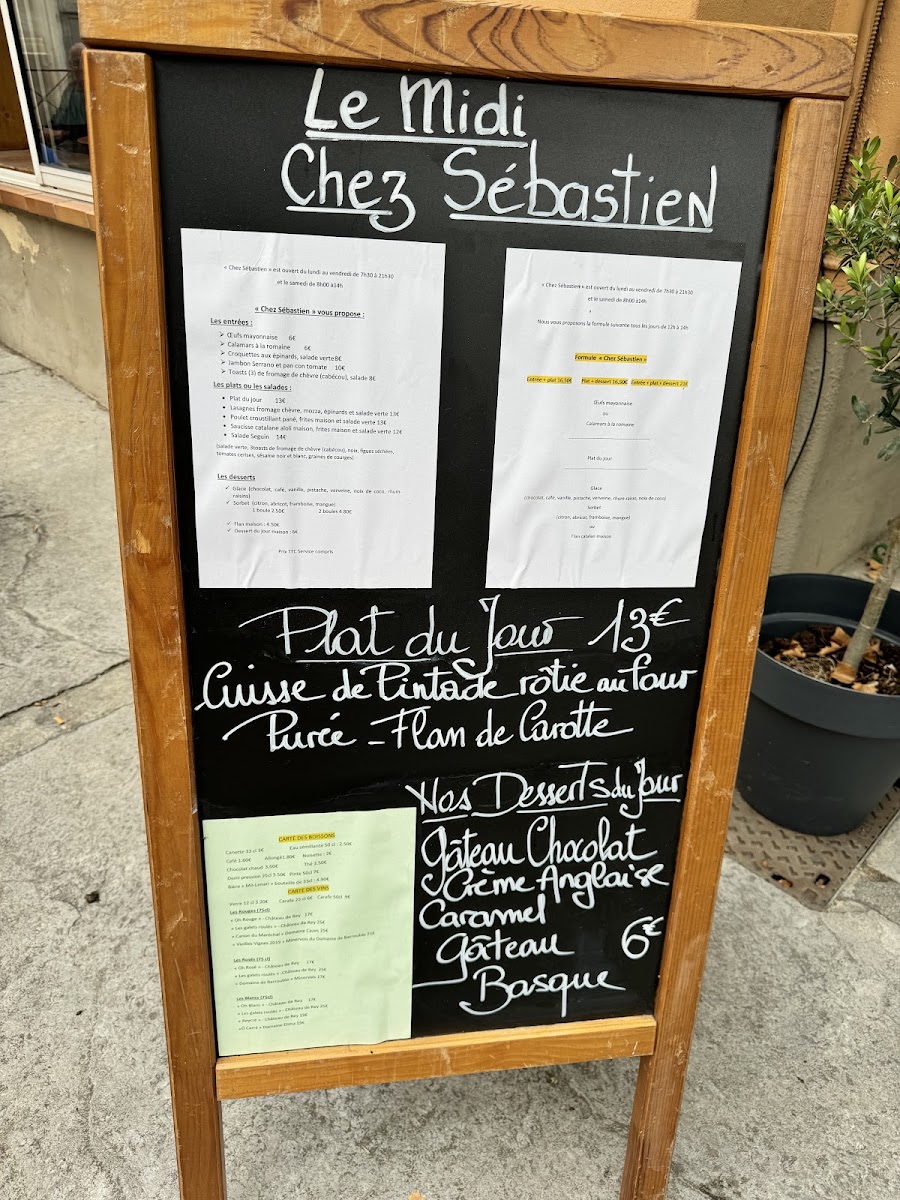 Le Midi
Chez Sébastien
« Chez Sébastien » est ouvert du lundi au vendredi de 7h30 à 21h30
et le samedi de 8h00 à14h
« Chez Sébastien » vous propose :
Les entrées :
Œufs mayonnaise 6€
Calamars à la romaine 6€
Croquettes aux épinards, salade verte8€
Jambon Serrano et pan con tomate 10€
Toasts (3) de fromage de chèvre (cabécou), salade 8€
Les plats ou les salades :
Plat du jour 13€
Lasagnes fromage chèvre, mozza, épinards et salade verte 13€
Poulet croustillant pané, frites maison et salade verte 13€
Saucisse catalane aïoli maison, frites maison et salade verte 12€
Salade Seguin 14€
(salade verte, 3toasts de fromage de chèvre (cabécou), noix, figues séchées,
tomates cerises, sésame noir et blanc, graines de courges)
Les desserts
Glace (chocolat, café, vanille, pistache, verveine, noix de coco, rhum
raisins)
Sorbet (citron, abricot, framboise, mangue)
1 boule 2.50€ 2 boules 4.80€
Flan maison : 4.50€
Dessert du jour maison : 6€
Prix TTC Service compris
« Chez Sébastien » est ouvert du lundi au vendredi de 7h30 à 21h30
et le samedi de 8h00 à14h
Nous vous proposons la formule suivante tous les jours de 12h à 14h
Formule « Chez Sébastien »
Entrée + plat 16,50€ Plat + dessert 16,50€ Entrée + plat + dessert 21€
Œufs mayonnaise
ou
Calamars à la romaine
Plat du jour
Glace
(chocolat, café, vanille, pistache, verveine, rhum-raisin, noix de coco)
Sorbet
(citron, abricot, framboise, mangue)
ou
Flan catalan maison
Plat du Jour 13€
Cuisse de Pintade rôtie au four
Purée - Flan de Carotte
Nos Desserts du Jour
Gâteau Chocolat
Crème Anglaise
Caramel
Gâteau 6€
Basque
CARTE DES BOISSONS
Canette 33 cl 3€ Eau pétillante 50 cl : 3.50€
Café 1.60€ Allongé1.80€ Noisette : 2€
Chocolat chaud 3,50€ Thé 3,50€
Demi pression 25cl 3.50€ Pinte 50cl 7€
CARTE DES VINS
Verre 12 cl 3.20€ Carafe 25 cl 6€ Carafe 50cl 9€
Les Rouges (75cl)
« Oh Rouge » - Château de Rey 17€
« Les galets roulés » - Château de Rey 25€
Les Rosés (75 cl)
« Oh Rosé » - Château de Rey 17€
« Les galets roulés » - Château de Rey 25€
Les Blancs (75cl)
« Oh Blanc » - Château de Rey 17€
« Les galets roulés » - Château de Rey 25€